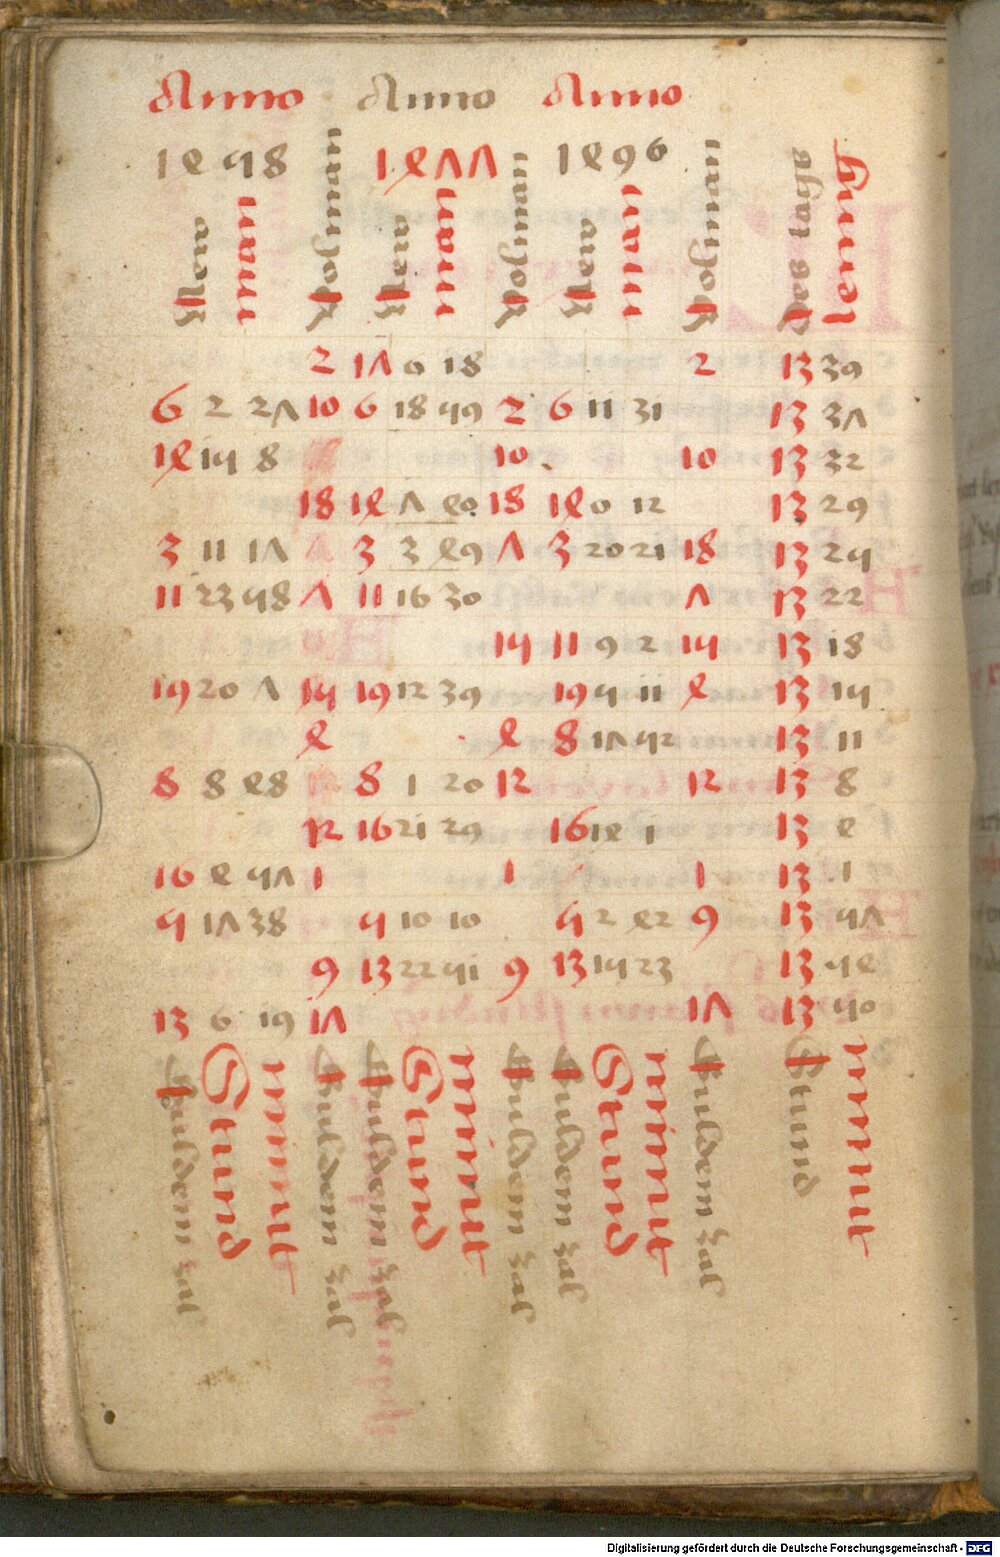 Anno Anno Anno
1458 1477 1496
New man Volman New man Volman New man Volman Des tags lenng
2 17 0 18 2 13 39
6 2 27 10 6 18 59 2 6 11 31 13 37
14 15 8 10 10 13 32
18 14 7 40 18 14 0 12 13 29
3 11 17 3 3 49 7 3 20 21 18 13 25
11 23 58 7 11 16 30 7 13 22
15 11 9 2 15 13 18
19 20 7 15 19 12 39 19 5 11 4 13 15
4 4 8 17 52 13 11
8 8 48 8 1 20 12 12 13 8
12 16 21 29 16 14 1 13 4
16 4 57 1 1 1 13 1
5 17 38 5 10 10 5 2 42 9 13 57
9 13 22 51 9 13 15 23 13 54
13 6 19 17 17 13 50
Guldem zal Stund minut Guldem zal Guldem zal Stund minut Guldem zal Guldem zal Stund minut Guldem zal Stund minut
Digitalisierung gefördert durch die Deutsche Forschungsgemeinschaft - DFG